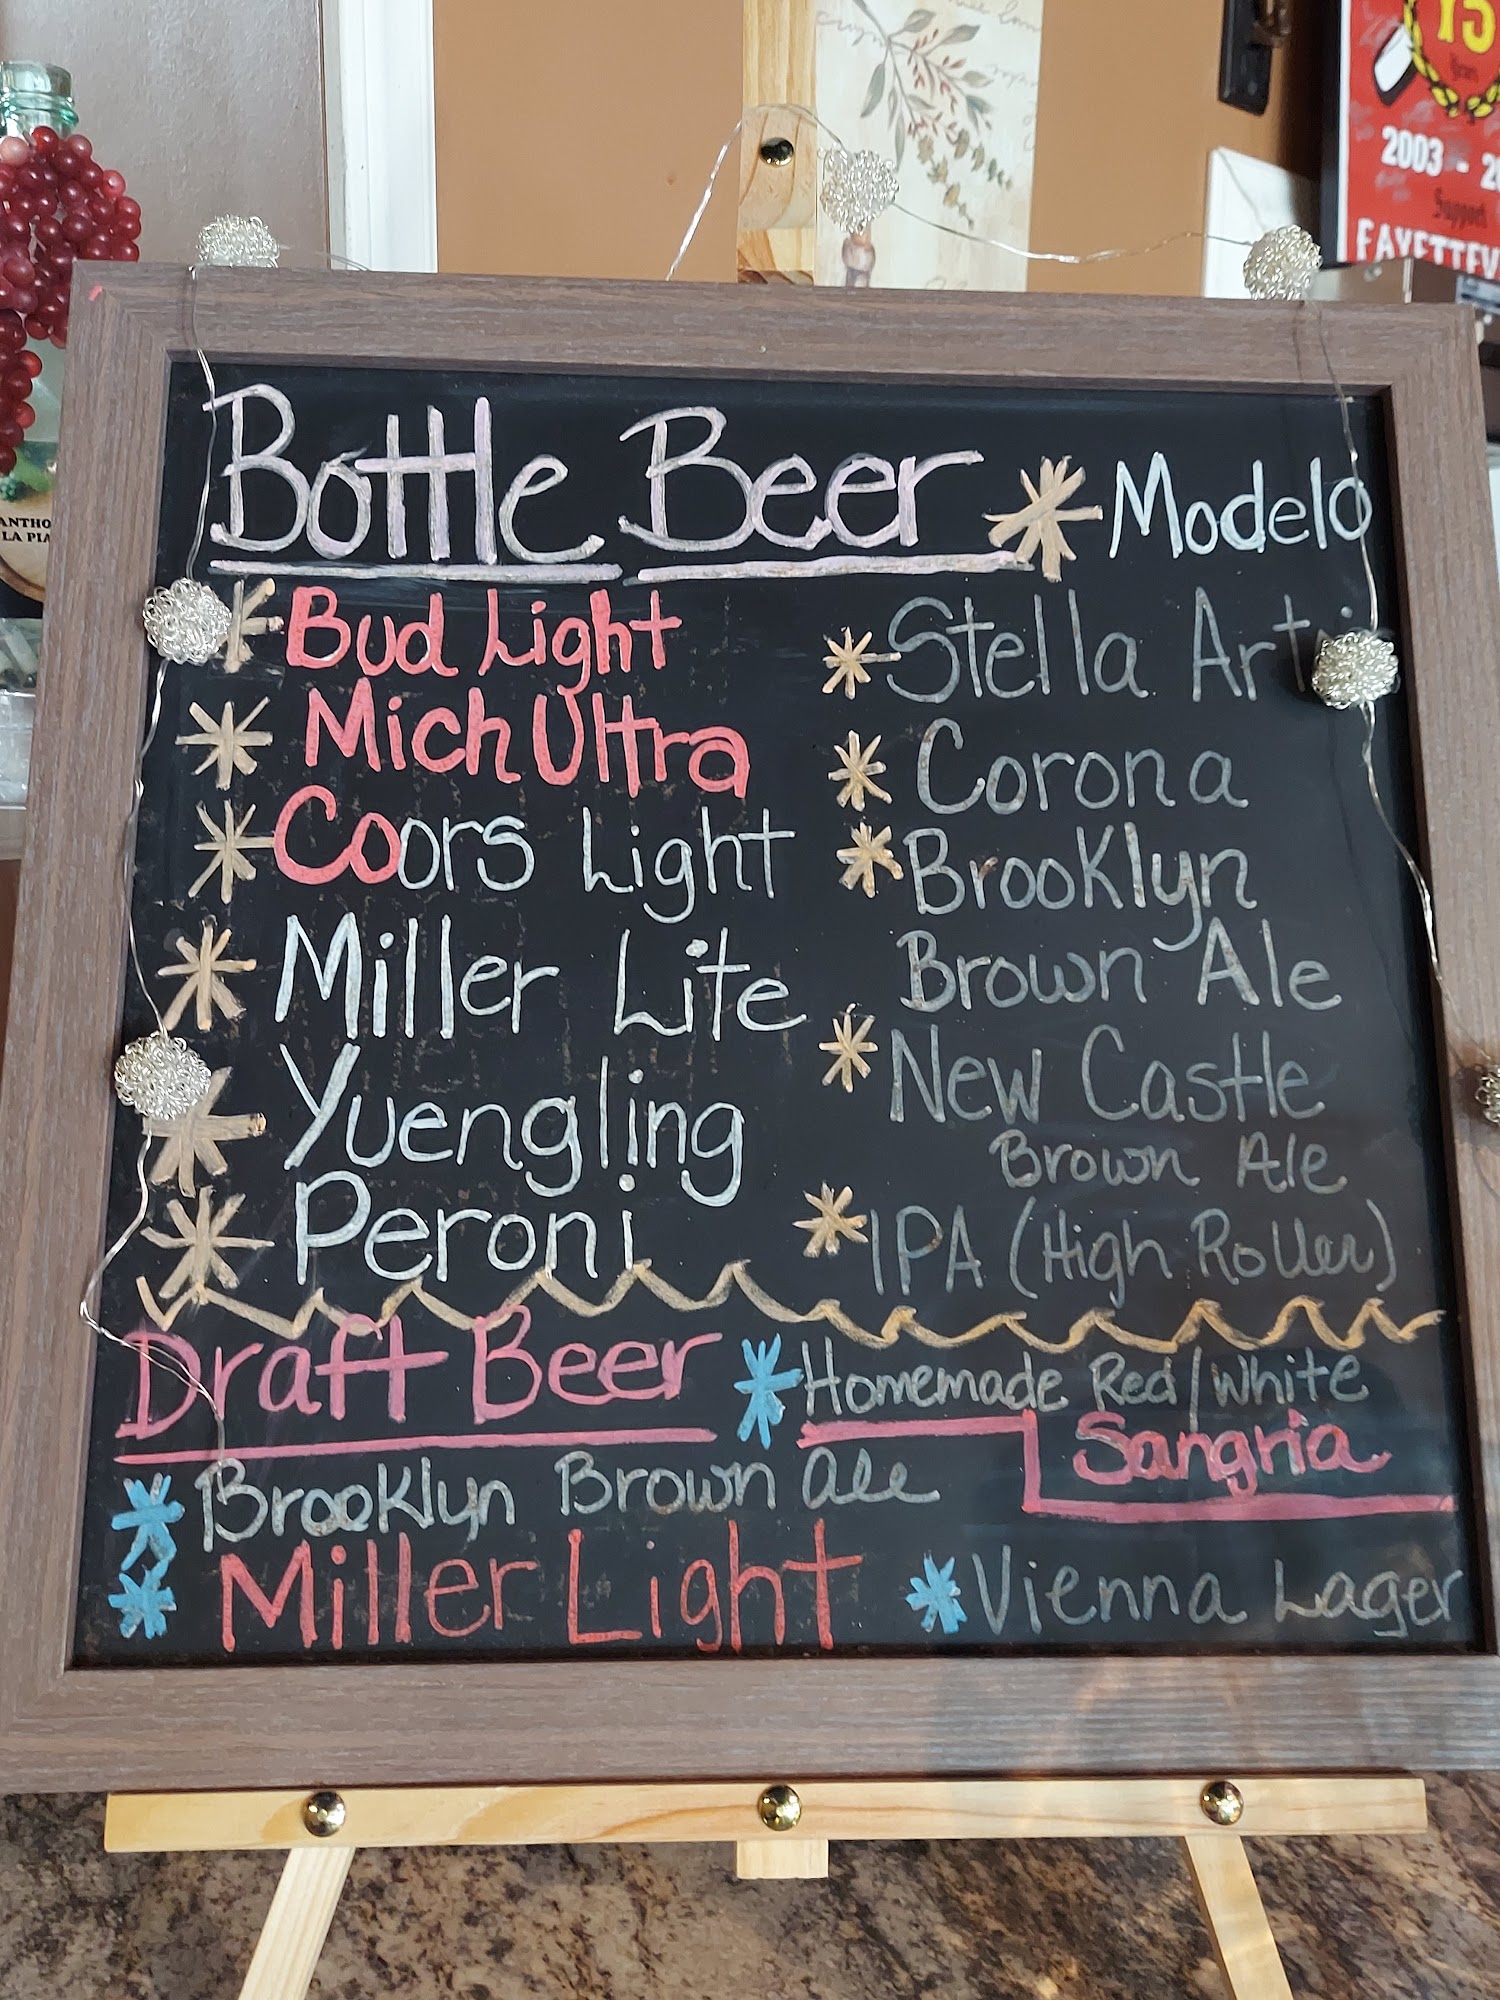 15
Years
2003 - 2
Support
FAYETTEV
ANTHO
LA PIA
Bottle Beer
Modelo
Bud Light
Mich Ultra
Coors Light
Miller Lite
Yuengling
Peroni
Stella Art
Corona
Brooklyn
Brown Ale
New Castle
Brown Ale
IPA (High Roller)
Draft Beer
Brooklyn Brown ale
Miller Light
Homemade Red/White
Sangria
Vienna Lager